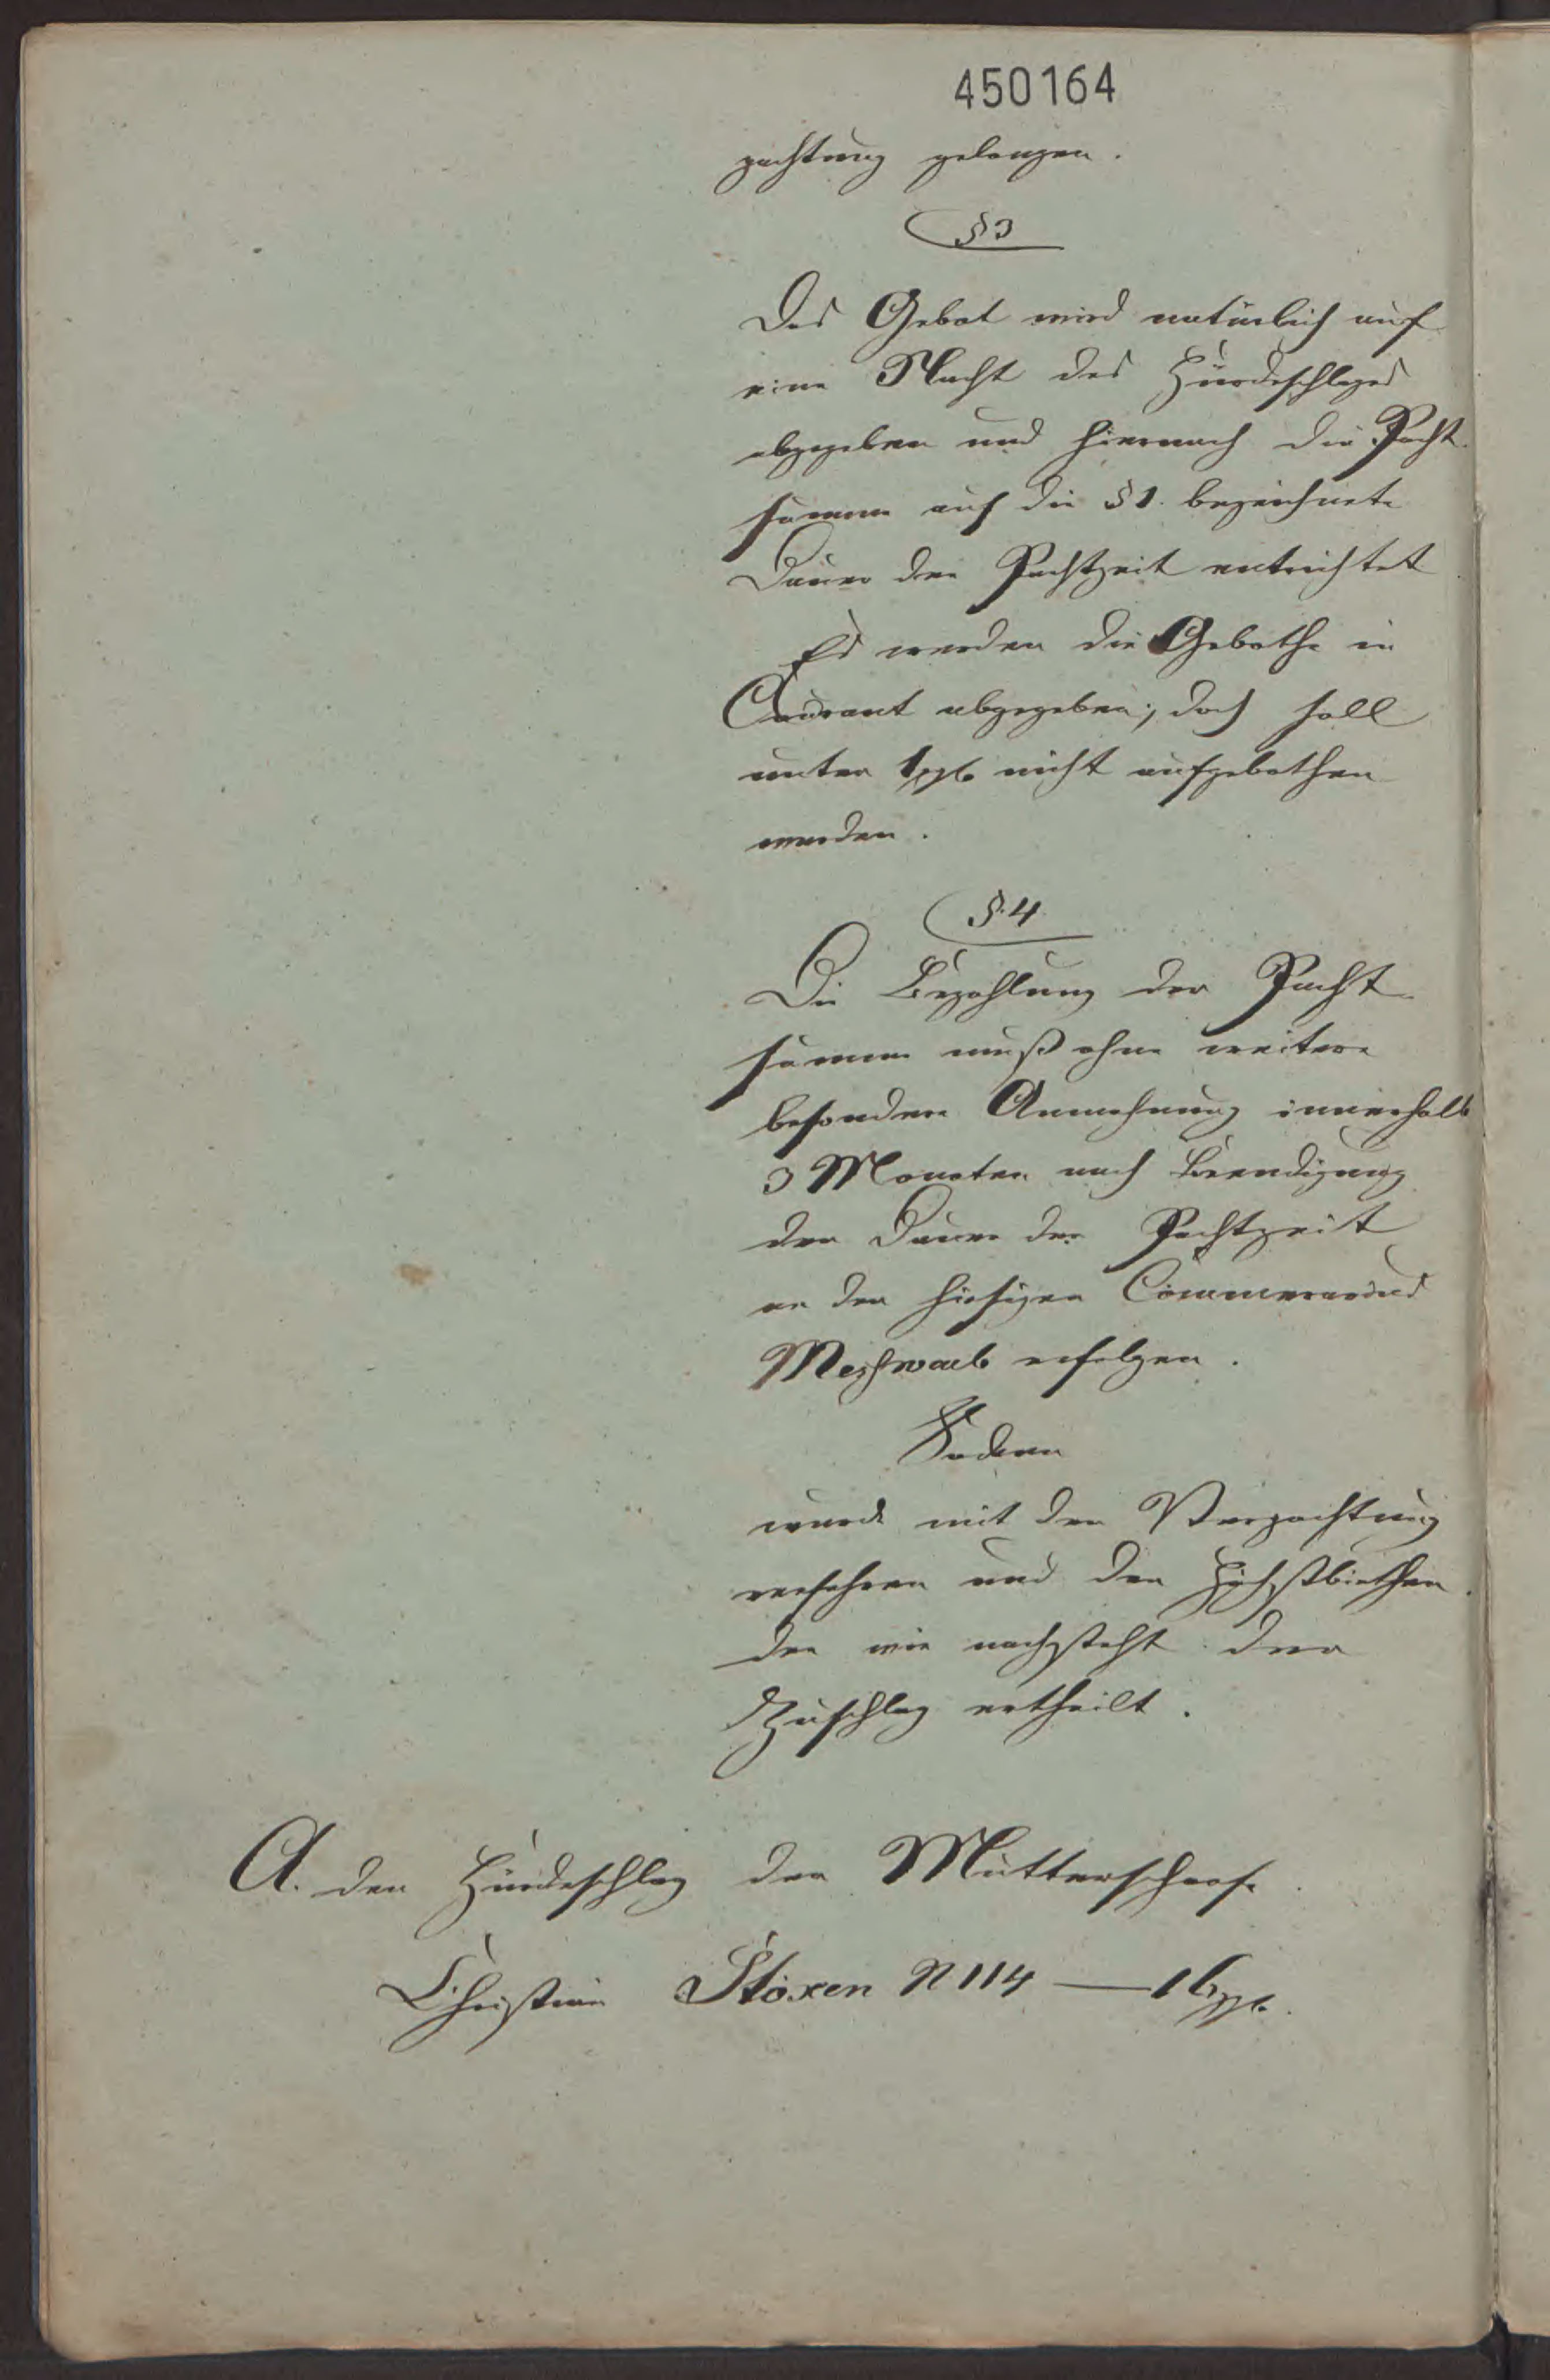 450164
pachtung gelangen.
§ 3
Das Gebot wird natürlich auf
eine Nacht des Hürdeschlages
abgegeben und hiernach die Pacht-
summe auf die § 1. bezeichnete
Dauer der Pachtzeit entrichtet
Es werden die Gebothe in
Courant abgegeben; doch soll
unter 1 ggl nicht aufgebothen
werden.
§. 4.
Die Bezahlung der Pacht-
summe muß ohne weitere
besondere Anmahnung innerhalb
3 Monaten nach Beendigung
der Dauer der Pachtzeit
an den hiesigen
erfolgen.
Sodann
wurde mit der Verpachtung
verfahren und den Höchstbiethen-
den wie nachsteht der
Zuschlag ertheilt.
A. den Hürdeschlag der Mutterschaafe.
Christian Stöxen N 114 —